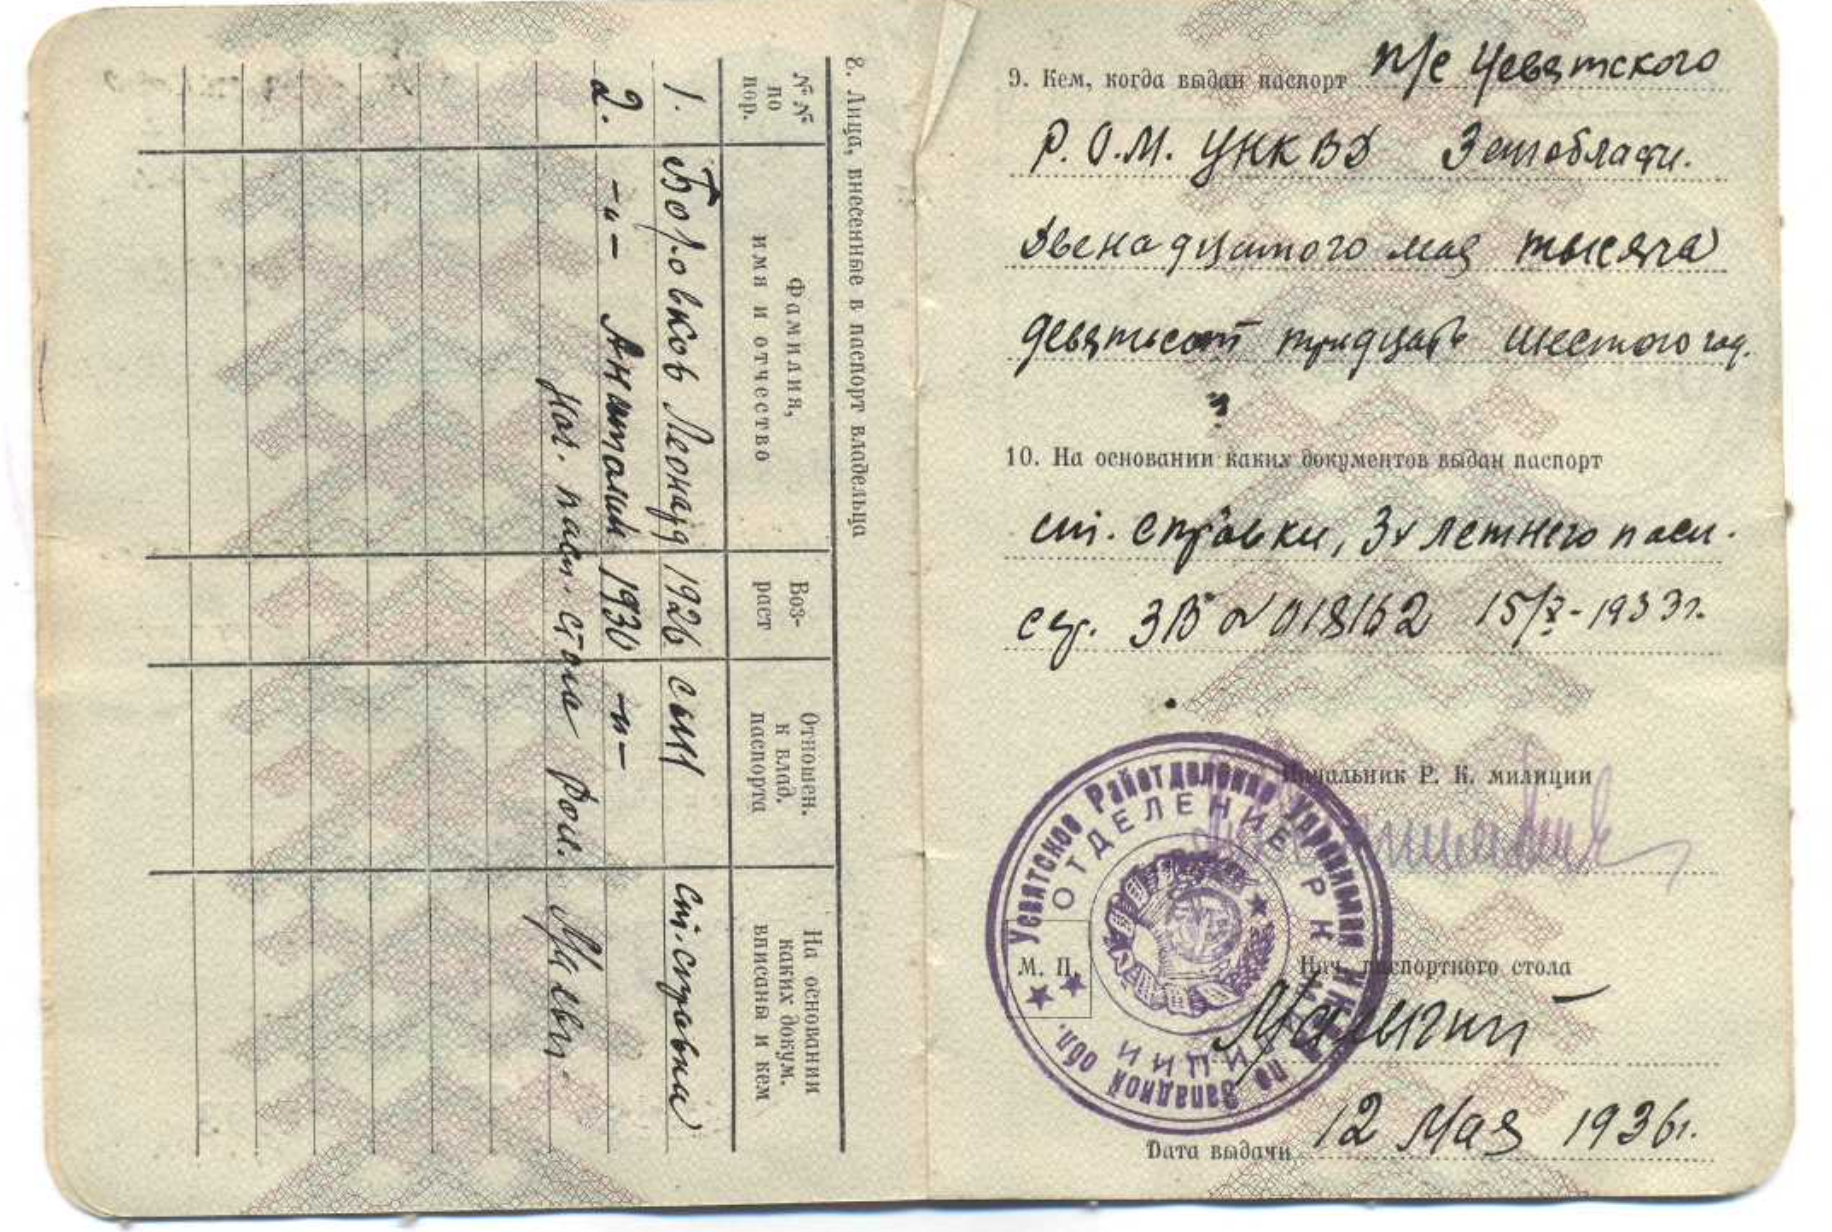 8. Лица, внесенные в паспорт владельца
№№ по пор.
Фамилия, имя и отчество
Воз-
раст
Отношен. к влад. паспорта
На основании каких докум. вписаны и кем
1. Боровков Леонард 1926 сын ст. справка
2. -"- Анатолий 1930 -"-
Нач. пасп. стола
9. Кем, когда выдан паспорт п/с Усвятского
Р.О.М. УНКВД Запобласти.
Двенадцатого мая тысяча
девятьсот тридцать шестого год.
10. На основании каких документов выдан паспорт
ст. справки, 3х летнего пасп.
ЗВ № 018162 15/X-1933г.
Начальник Р. К. милиции
Усвятское Райотделение Управления НКВД по Западной обл.
ОТДЕЛЕНИЕ РК МИЛИЦИИ
М. П.
Нач. паспортного стола
Дата выдачи 12 Мая 1936г.